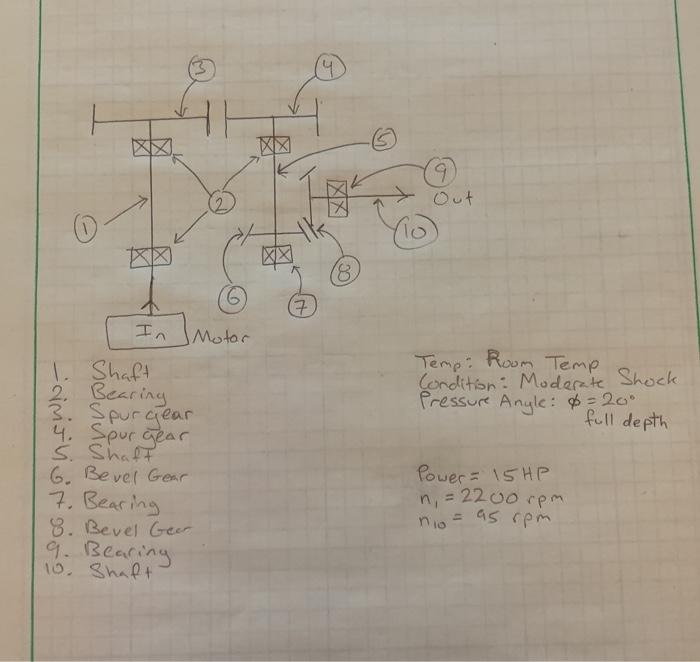 3
4
5
9
Out
2
1
10
8
6
7
In Motor
1. Shaft
2. Bearing
3. Spur gear
4. Spur gear
5. Shaft
6. Bevel Gear
7. Bearing
8. Bevel Gear
9. Bearing
10. Shaft
Temp: Room Temp
Condition: Moderate Shock
Pressure Angle: ϕ = 20°
full depth
Power = 15 HP
n₁ = 2200 rpm
n₁₀ = 95 rpm